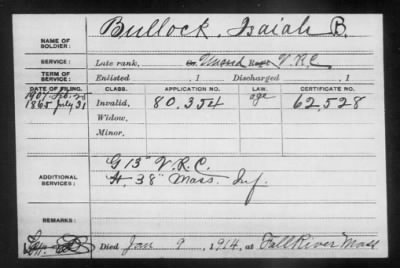 NAME OF SOLDIER: Bullock, Isaiah B.
SERVICE: Late rank, Unasd V.R.C.
TERM OF SERVICE: Enlisted , 1 Discharged , 1
DATE OF FILING. CLASS. APPLICATION NO. LAW. CERTIFICATE NO.
1907 Feb. 25
1865 July 31 Invalid, 80,354 age 62,528
Widow,
Minor,
ADDITIONAL SERVICES: G 13" V.R.C.
H. 38" Mass. Inf.
REMARKS:
Died Jan 9, 1914, at Fall River Mass